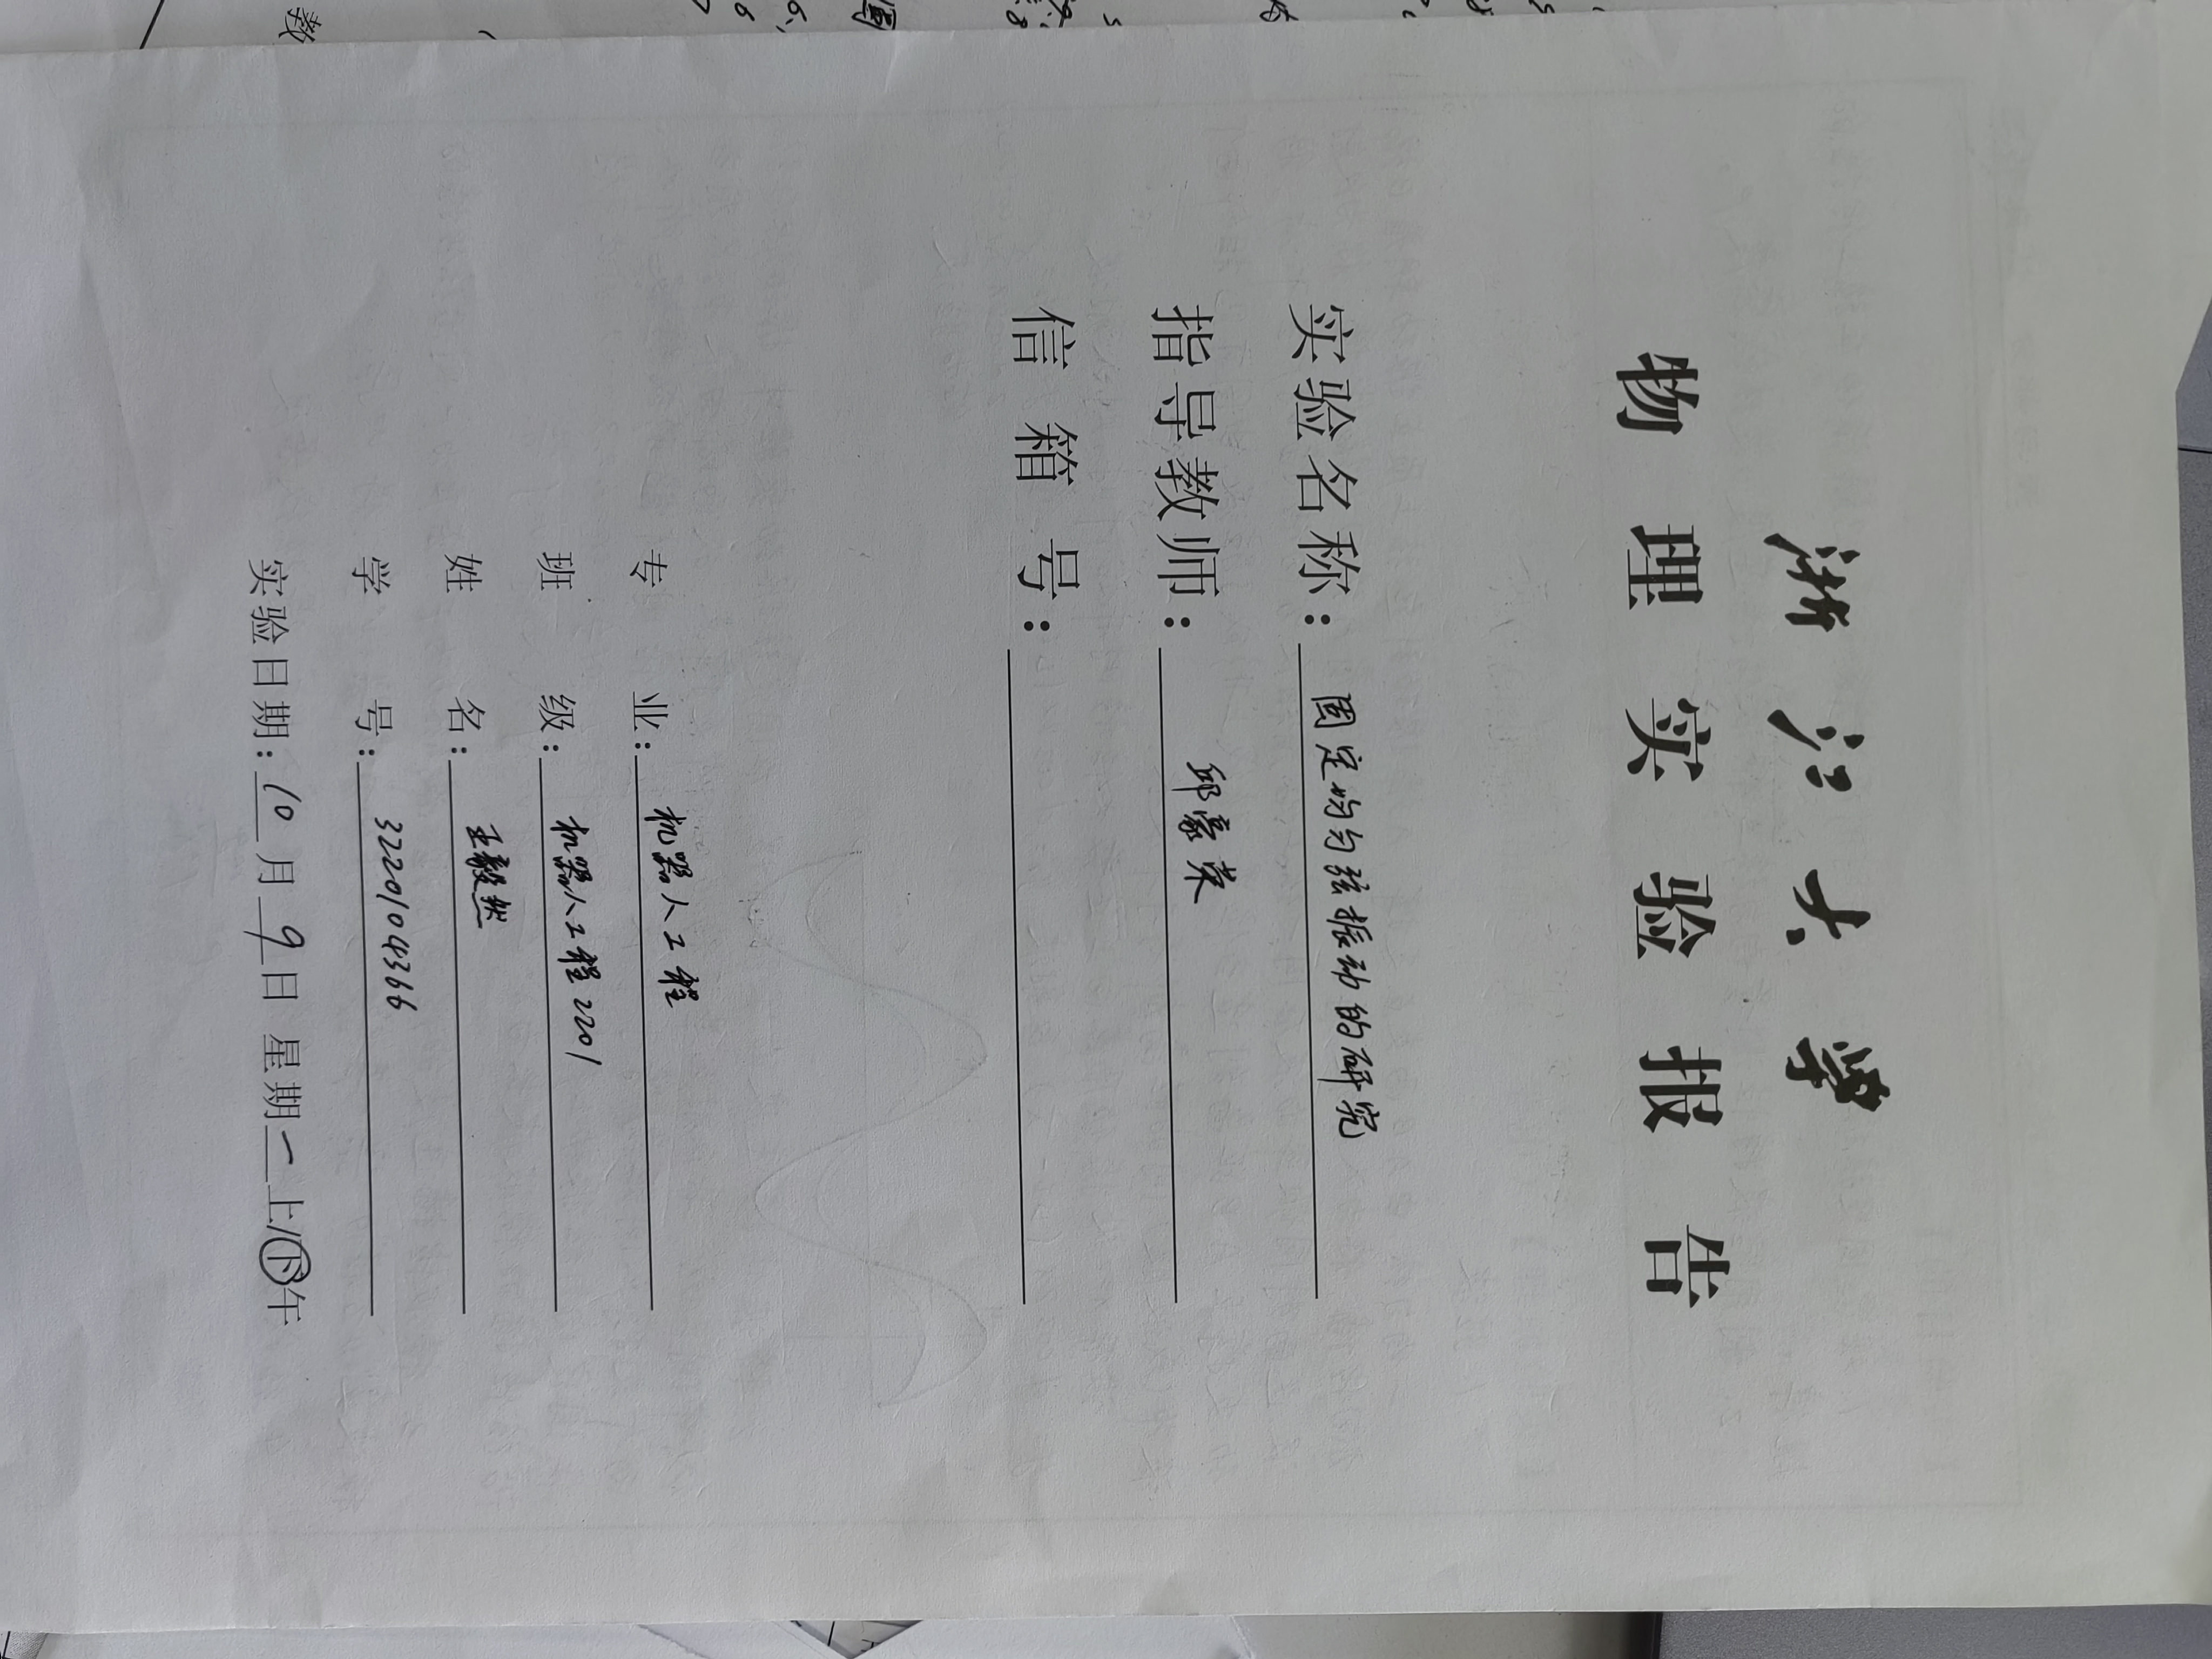 浙江大学
物理实验报告
实验名称：固定均匀弦振动的研究
指导教师：邱蒙荣
信箱号：
专业：机器人工程
班级：机器人工程2201
姓名：王毅然
学号：3220104366
实验日期：10月9日 星期一上/下午